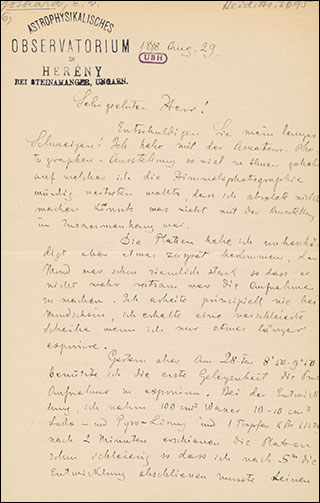 Gothard, E. v.
Heid. Hs. 3695
6)
ASTROPHYSIKALISCHES
OBSERVATORIUM
IN
HERÉNY
BEI STEINAMANGER, UNGARN.
1898 Aug. 29
UBH
Sehr geehrter Herr!
Entschuldigen Sie mein langes
Schweigen! Ich habe mit der Amateur-Pho-
tographen-Ausstellung so viel zu thun gehabt
auf welcher ich die Himmelsphotographie
würdig vertreten wollte, dass ich absolute nichts
machen konnte was nicht mit der Ausstellung
in Zusammenhang war.
Die Platten habe ich unbeschä-
digt aber etwas zu spät bekommen, der
Mond war schon ziemlich stark so dass es
nicht mehr ratsam war die Aufnahme
zu machen. Ich arbeite principiell nie bei
Mondschein, ich erhalte eine verschleierte
Scheibe wenn ich nur etwas länger
exponire.
Gestern aber Am 28. ten 8h 50 - 9h 50
benützte ich die erste Gelegenheit die
Aufnahme zu exponiren. Bei der Entwick-
lung, ich nahm 100 cm3 Wasser 10-10 cm3
Soda- und Pyro-Lösung und 1 Tropfen K Br
nach 2 Minuten erschienen die Platten
schon schleierig so dass ich nach 5m die
Entwicklung abschliessen musste. Keinen